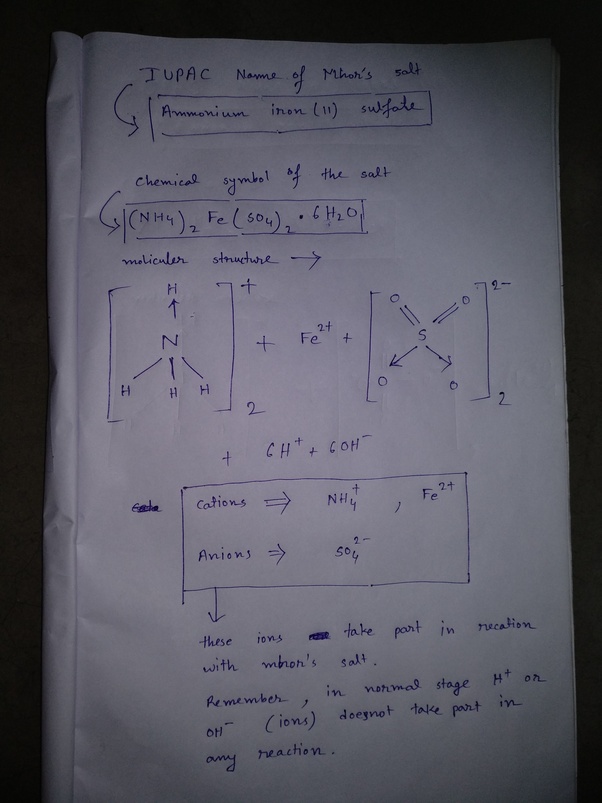 IUPAC Name of Mhor's salt
Ammonium iron (II) sulfate
Chemical symbol of the salt
(NH4)2 Fe (SO4)2 • 6H2O
moliculer structure →
[H ↑ N H H H]+ 2 + Fe2+ + [O O S O O]2- 2
+ 6H+ + 6OH-
Cations ⇒ NH4+ , Fe2+
Anions ⇒ SO4 2-
these ions take part in recation
with mhror's salt.
Remember, in normal stage H+ or
OH- (ions) doesnot take part in
any reaction.